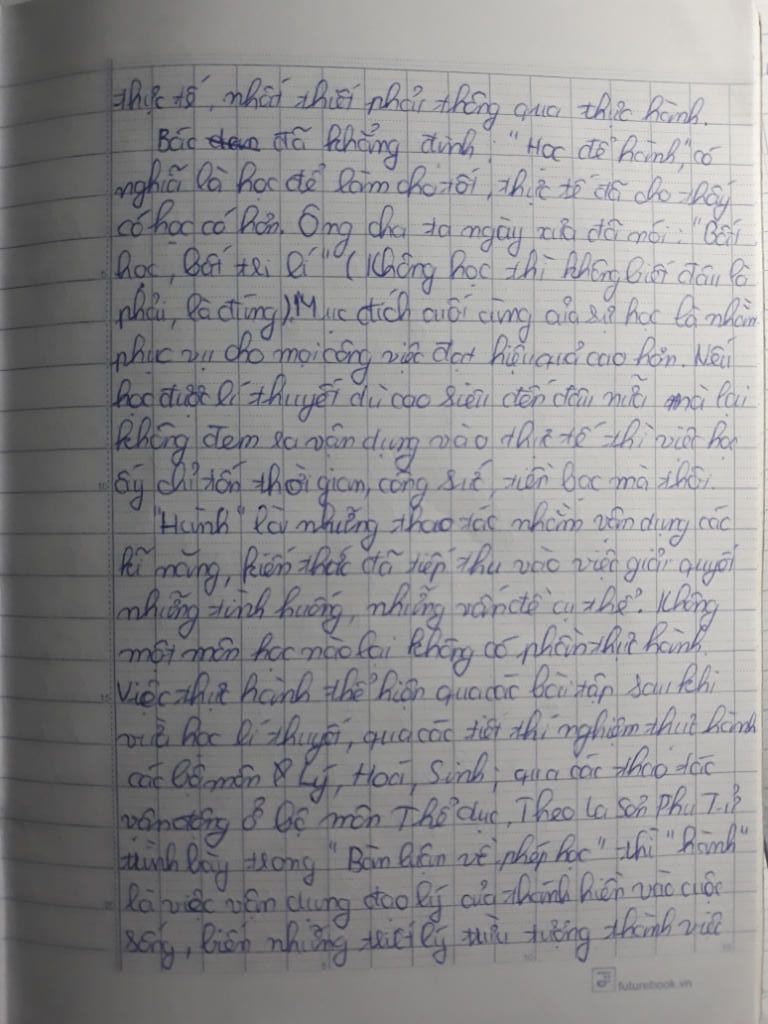 thực tế, nhất thiết phải thông qua thực hành.
Bác đã khẳng định: "Học để hành", có
nghĩa là học để làm cho tốt, thực tế đã cho thấy
có học có hơn. Ông cha ta ngày xưa đã nói: "Bất
học, bất tri lí" (Không học thì không biết đâu là
phải, là đúng). Mục đích cuối cùng của sự học là nhằm
phục vụ cho mọi công việc đạt hiệu quả cao hơn. Nếu
học được lí thuyết dù cao siêu đến đâu nữa mà lại
không đem ra vận dụng vào thực tế thì việc học
ấy chỉ tốn thời gian, công sức, tiền bạc mà thôi.
"Hành" là những thao tác nhằm vận dụng các
kĩ năng, kiến thức đã tiếp thu vào việc giải quyết
những tình huống, những vấn đề cụ thể. Không
một môn học nào lại không có phần thực hành.
Việc thực hành thể hiện qua các bài tập sau khi
vừa học lí thuyết, qua các tiết thí nghiệm thực hành
các bộ môn Lý, Hoá, Sinh; qua các thao tác
vận động ở bộ môn Thể dục, Theo La Sơn Phu Tử
trình bày trong "Bàn luận về phép học" thì "hành"
là việc vận dụng đạo lý của thánh hiền vào cuộc
sống, biến những triết lý trừu tượng thành việc
futurebook.vn